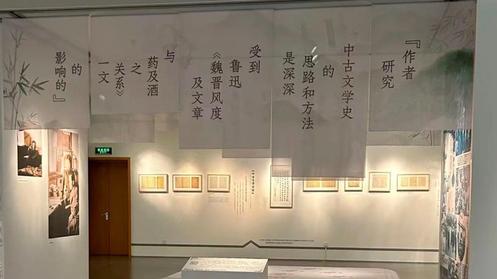 『作者
研究
中古文学史
的
思路和方法
是深深
受到
鲁迅
《魏晋风度
及文章
与
药及酒
之
关系》
一文
的
影响的』